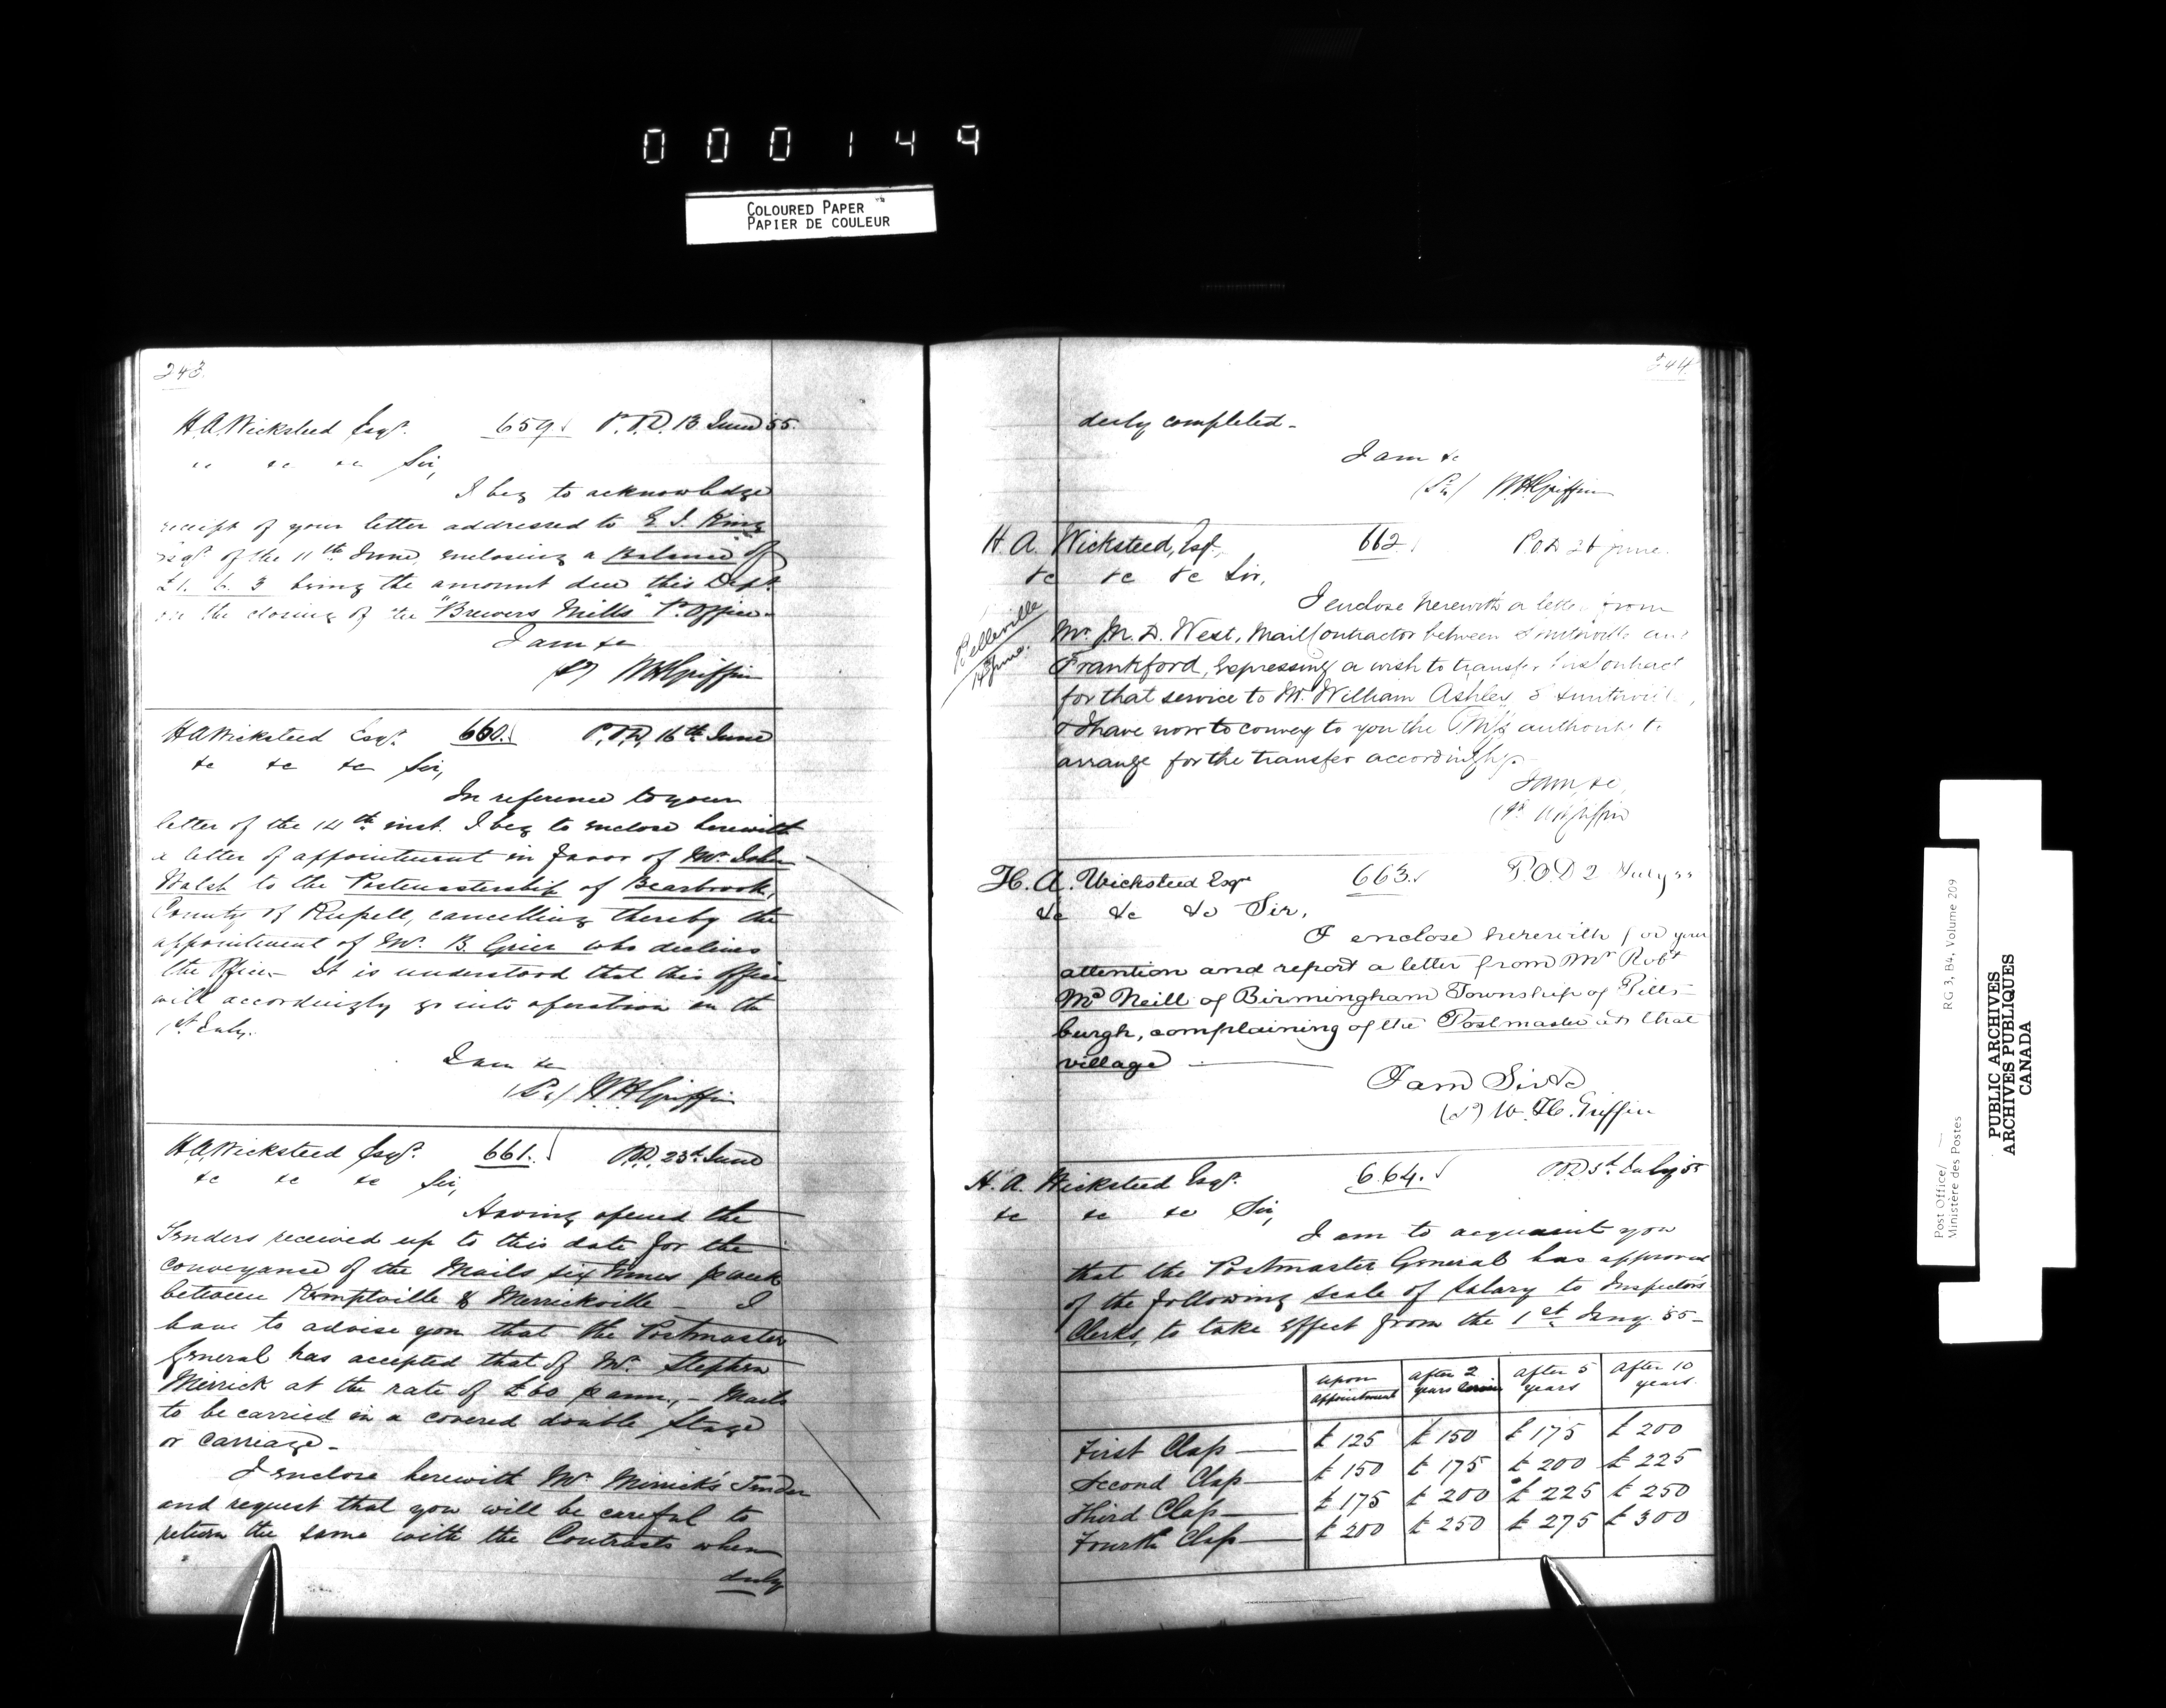 000149
COLOURED PAPER
PAPIER DE COULEUR
243.
H.A. Wicksteed Esqr. 659. P.O.D. 13 June 55.
" &c &c Sir,
I beg to acknowledge
receipt of your letter addressed to E. S. King
Esqr. of the 11th June, enclosing a Balance of
£1. 6. 3 being the amount due this Dept.
on the closing of the "Brewers Mills" P. Office.
I am &c
W H Griffin
H A Wicksteed Esqr. 660. P.O.D. 16th June
&c &c &c Sir,
In reference to your
letter of the 14th inst. I beg to enclose herewith
a letter of appointment in favor of Mr. John
Walsh to the Postmastership of Bearbrook,
County of Russell, cancelling thereby the
appointment of Mr. B. Grier who declines
the Office. It is understood that this office
will accordingly go into operation on the
1st July.
I am &c
W H Griffin
H A Wicksteed Esqr. 661. P.O.D. 23d. June
&c &c &c Sir,
Having opened the
Tenders received up to this date for the
conveyance of the Mails six times p week
between Kemptville & Merrickville — I
have to advise you that the Postmaster
General has accepted that of Mr. Stephen
Merrick at the rate of £60 p ann, — Mails
to be carried in a covered double Stage
or Carriage.
I enclose herewith Mr. Merrick's Tender
and request that you will be careful to
return the same with the Contracts when
duly
244
duly completed.
I am &c
W H Griffin
H. A. Wicksteed, Esqr. 662. P.O.D 26 June.
&c &c &c Sir,
Belleville
14 June.
I enclose herewith a letter from
Mr. M. D. West, Mail Contractor between Smithville and
Frankford, expressing a wish to transfer his Contract
for that service to Mr. William Ashley of Smithville,
& I have now to convey to you the PMG's authority to
arrange for the transfer accordingly.
I am, &c,
W H Griffin
H. A. Wicksteed Esqre 663. P.O.D 2 July 55
&c &c &c Sir,
I enclose herewith for your
attention and report a letter from Mr Robt
McNeill of Birmingham Township of Pitts-
burgh, complaining of the Postmaster at that
village
I am Sir &c
W. H. Griffin
H. A. Wicksteed Esqr. 664. P.O.D 5th July 55
&c &c &c Sir,
I am to acquaint you
that the Postmaster General has approved
of the following scale of Salary to Inspectors
Clerks, to take effect from the 1st Jany. 55—
upon appointment | after 2 years service | after 5 years | after 10 years.
First Class — £125 £150 £175 £200
Second Class — £150 £175 £200 £225
Third Class — £175 £200 £225 £250
Fourth Class — £200 £250 £275 £300
Post Office/
Ministère des Postes
RG 3, B4, Volume 209
PUBLIC ARCHIVES
ARCHIVES PUBLIQUES
CANADA